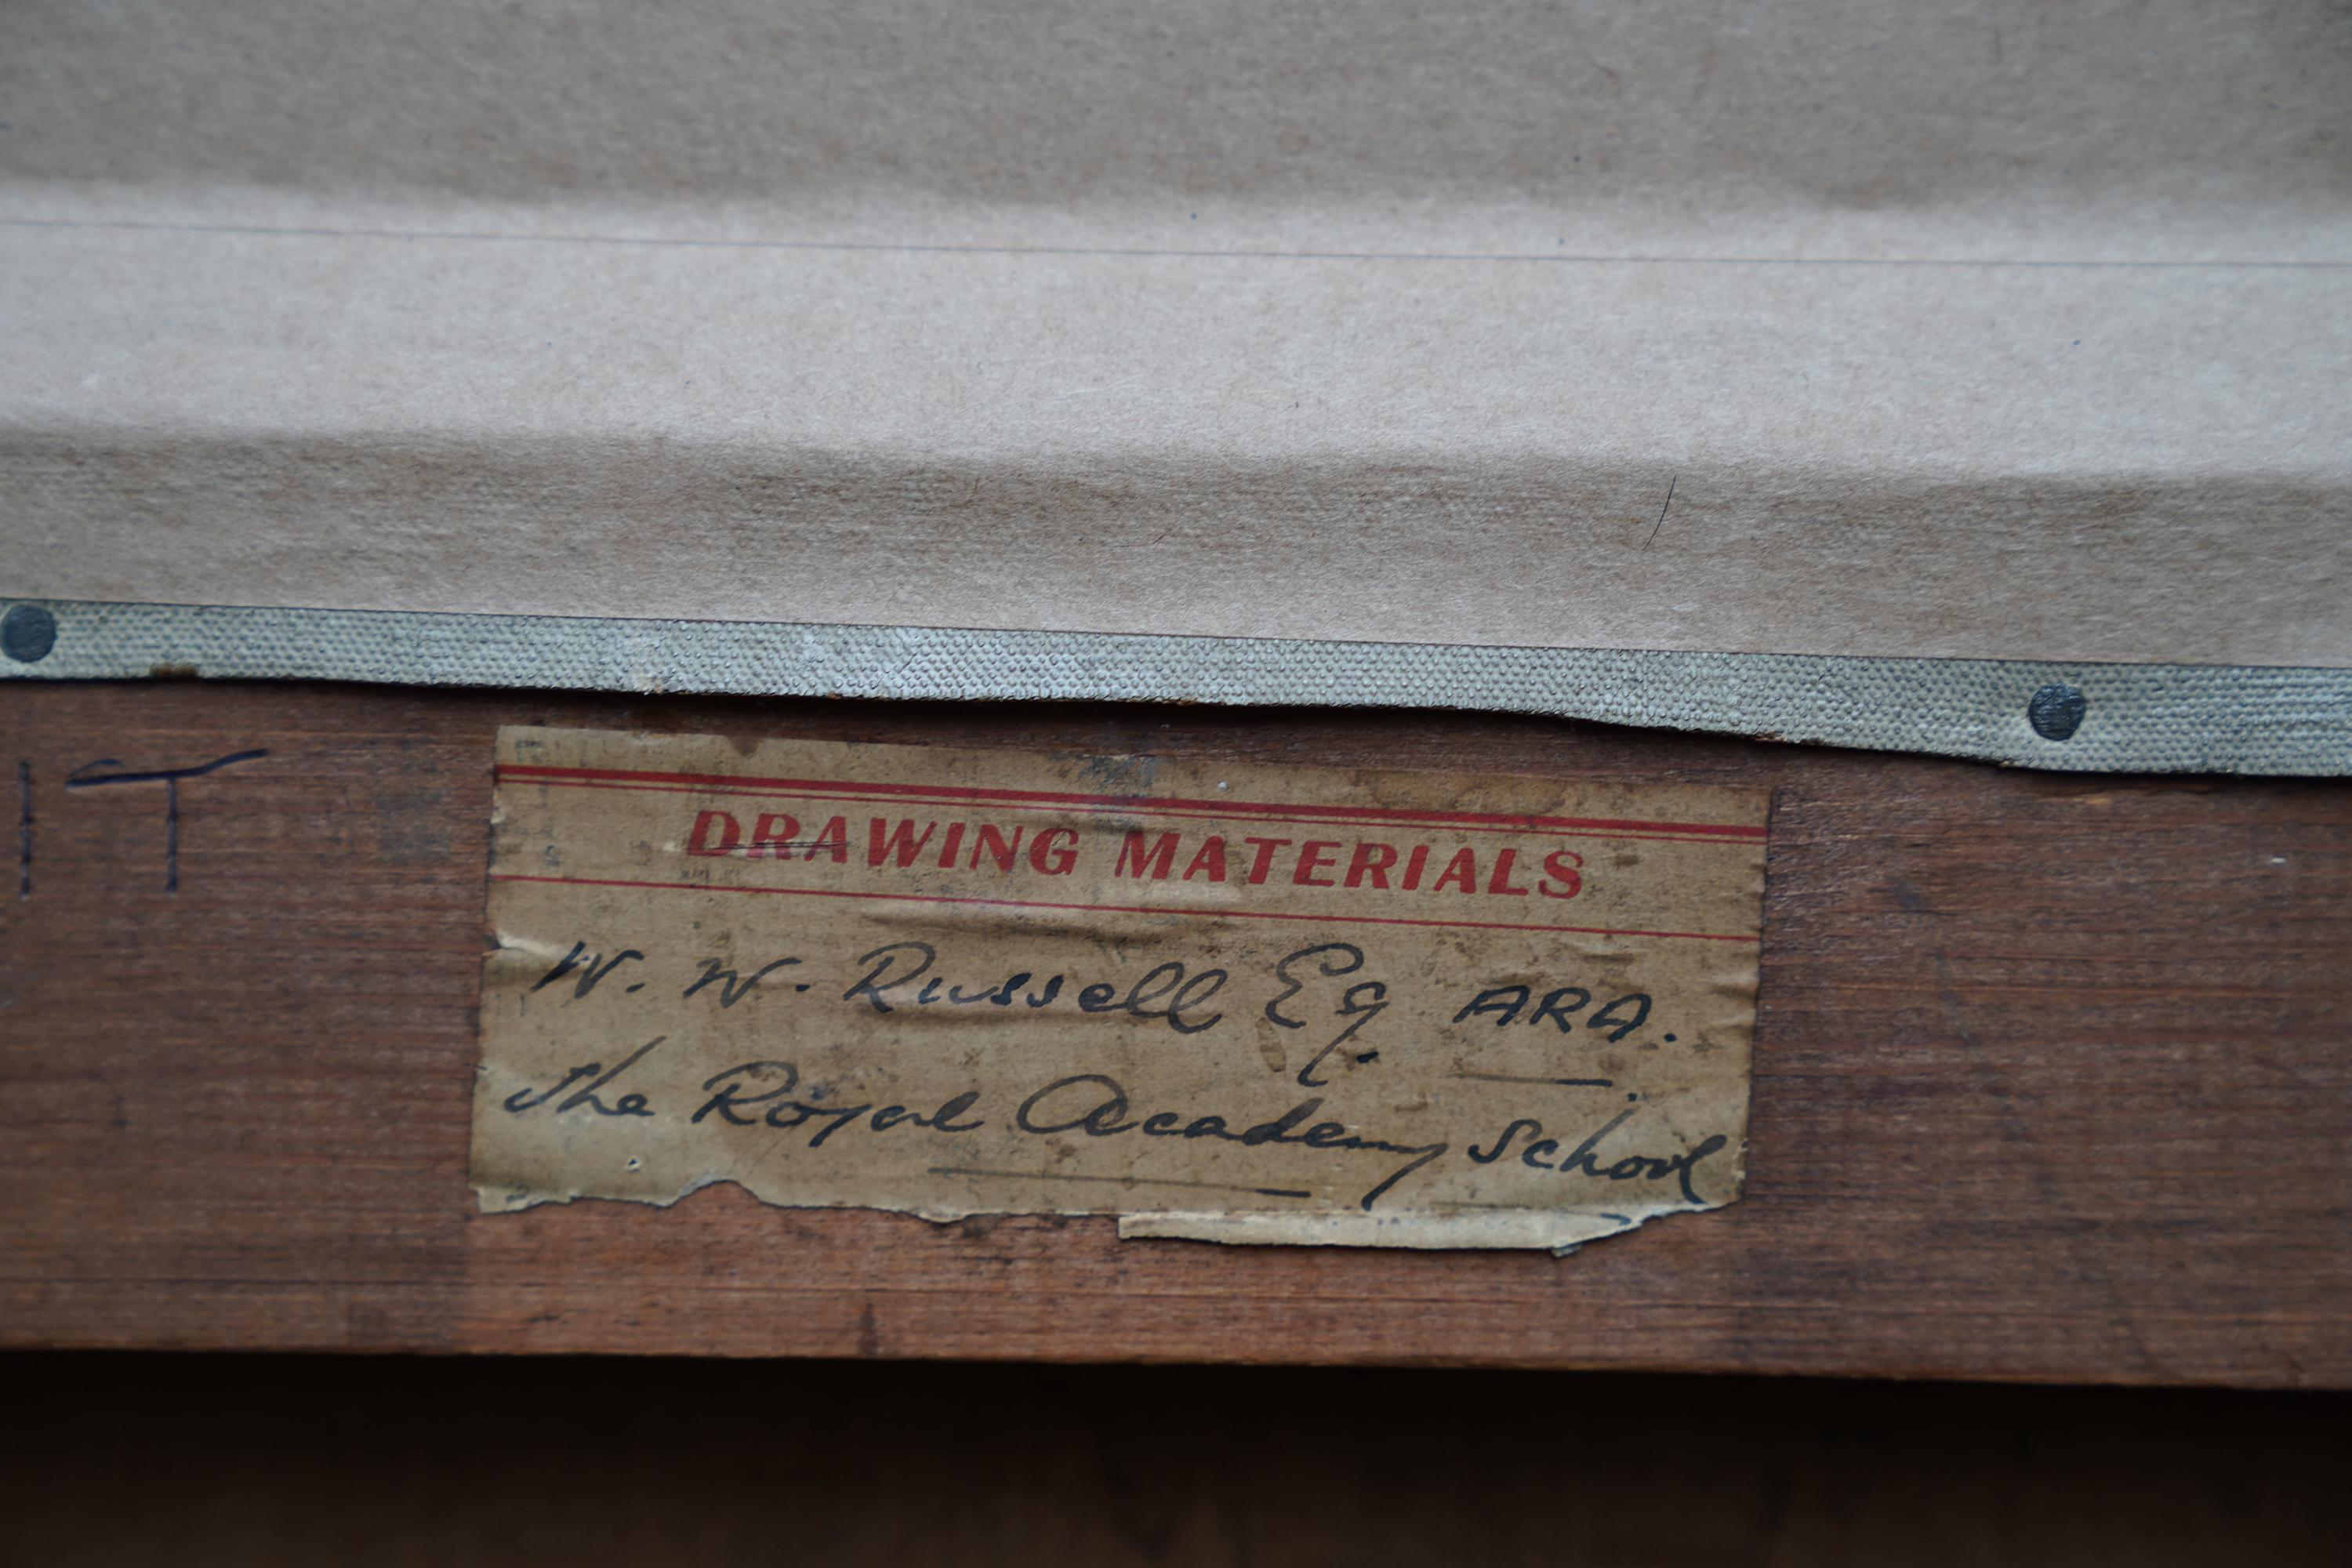 DRAWING MATERIALS
W. W. Russell Esq. ARA.
The Royal Academy School